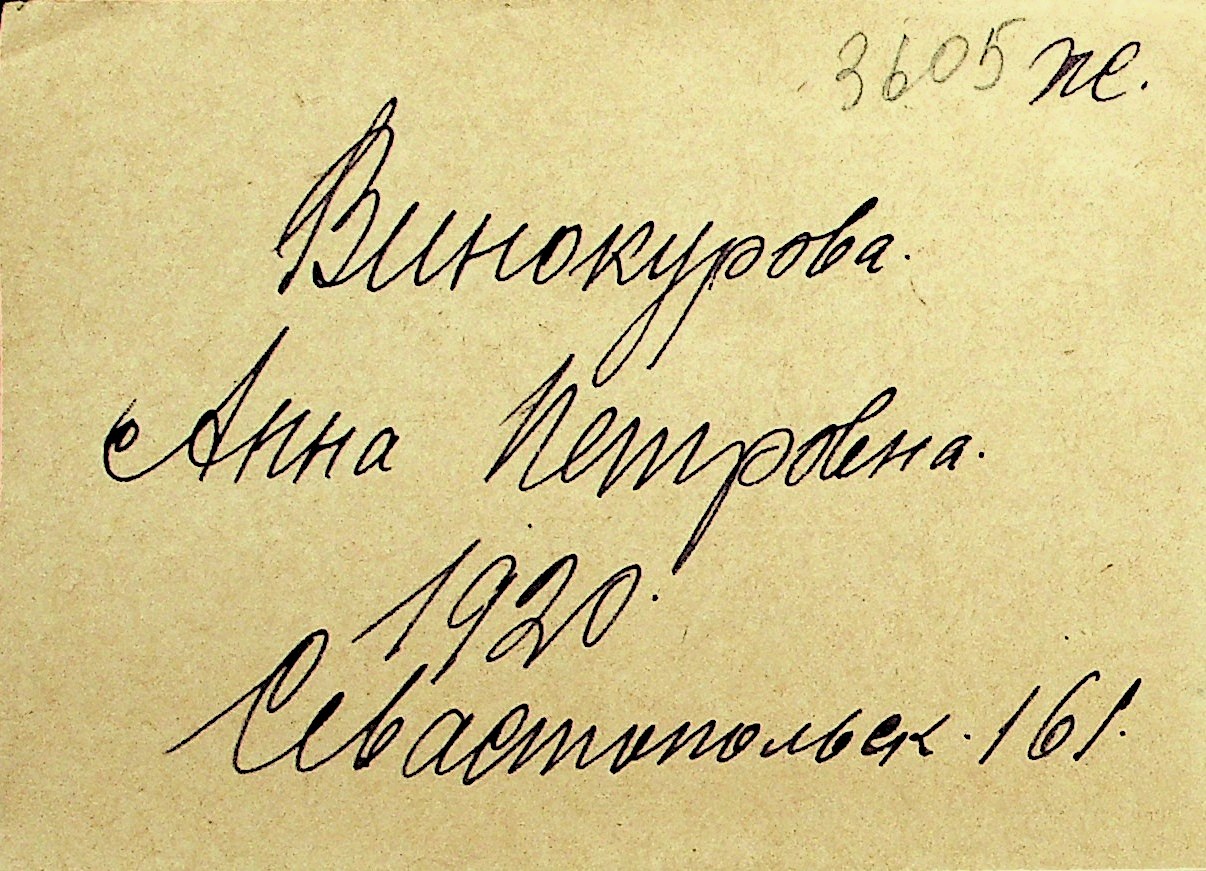 3605 пс.
Винокурова.
Анна Петровна.
1920.
Севастопольск. 161.